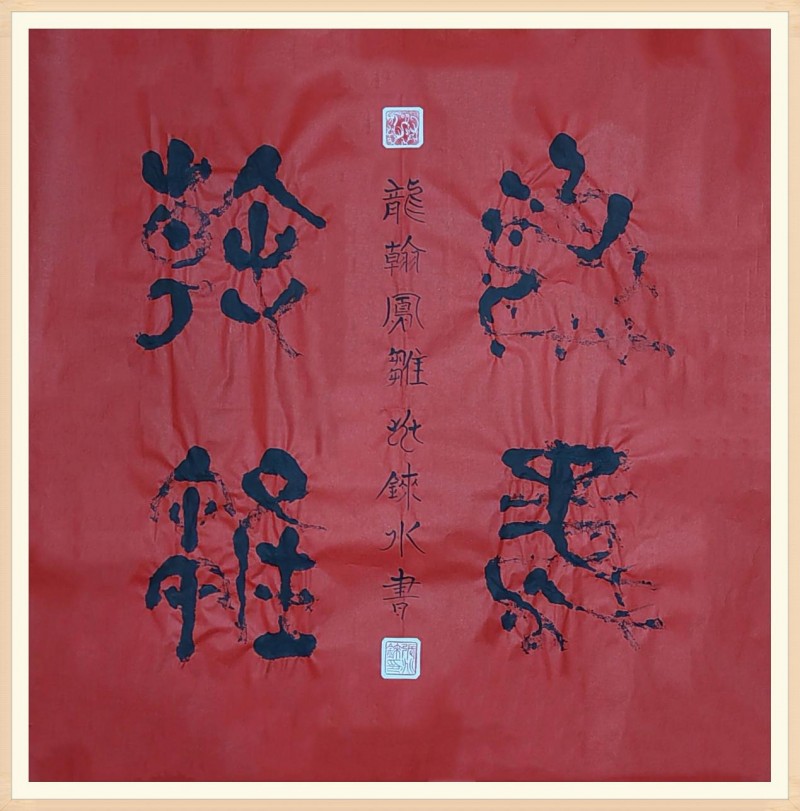 龍翰
鳳雛
龍翰鳳雛錸水書